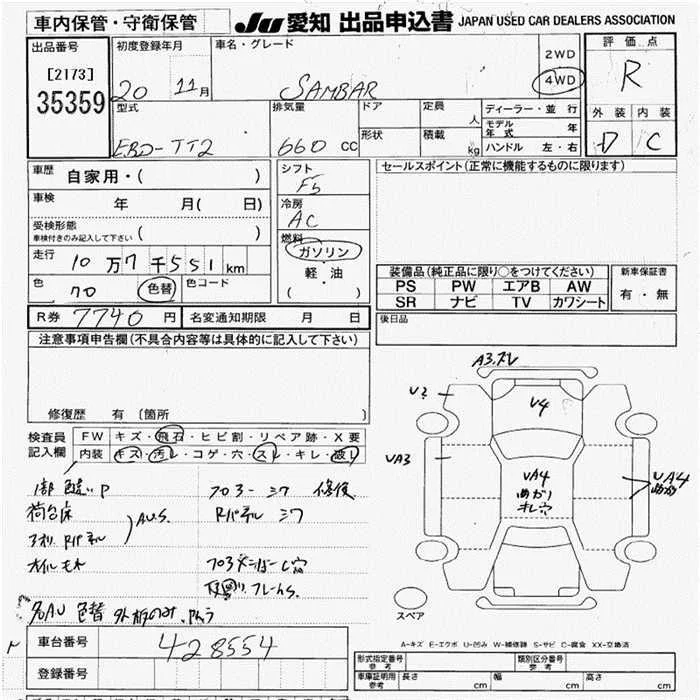 車内保管・守衛保管
JU 愛知 出品申込書 JAPAN USED CAR DEALERS ASSOCIATION
出品番号
[2173]
35359
初度登録年月
20 11月
車名・グレード
SAMBAR
2WD
4WD
評価点
R
外装 内装
D C
型式
EBD-TT2
排気量
660 CC
ドア
形状
定員
人
積載
kg
ディーラー・並行
モデル年式 年
ハンドル 左・右
車歴 自家用・( )
車検 年 月( 日)
受検形態
車検付きのみ記入して下さい ( )
走行 10万7千551km
色 色替 色コード
シフト
F5
冷房
AC
燃料
ガソリン
軽・油
( )
セールスポイント(正常に機能するものに限ります)
装備品(純正品に限り○をつけてください)
PS PW エアB AW
SR ナビ TV カワシート
新車保証書
有・無
R券 7740円 名変通知期限 月 日
後日品
注意事項申告欄(不具合内容等は具体的に記入して下さい)
修復歴 有 (箇所
検査員
記入欄
FW キズ・飛石・ヒビ割・リペア跡・X要
内装 キズ・汚レ・コゲ・穴・スレ・キレ・破レ
荷台床
A.U.S.
Rパネル
オイルモレ
フロアー シワ 修復
Rパネル シワ
色替 外板のみ
A3.
U2
U4
UA3
UA4
UA4
スペア
A-キズ E-エクボ U-凹み W-補修跡 S-サビ C-腐食 XX-交換済
車台番号 428554
登録番号
形式指定番号
参考
類別区分番号
参考
車庫証明用
参考
長さ cm 幅 cm 高さ cm